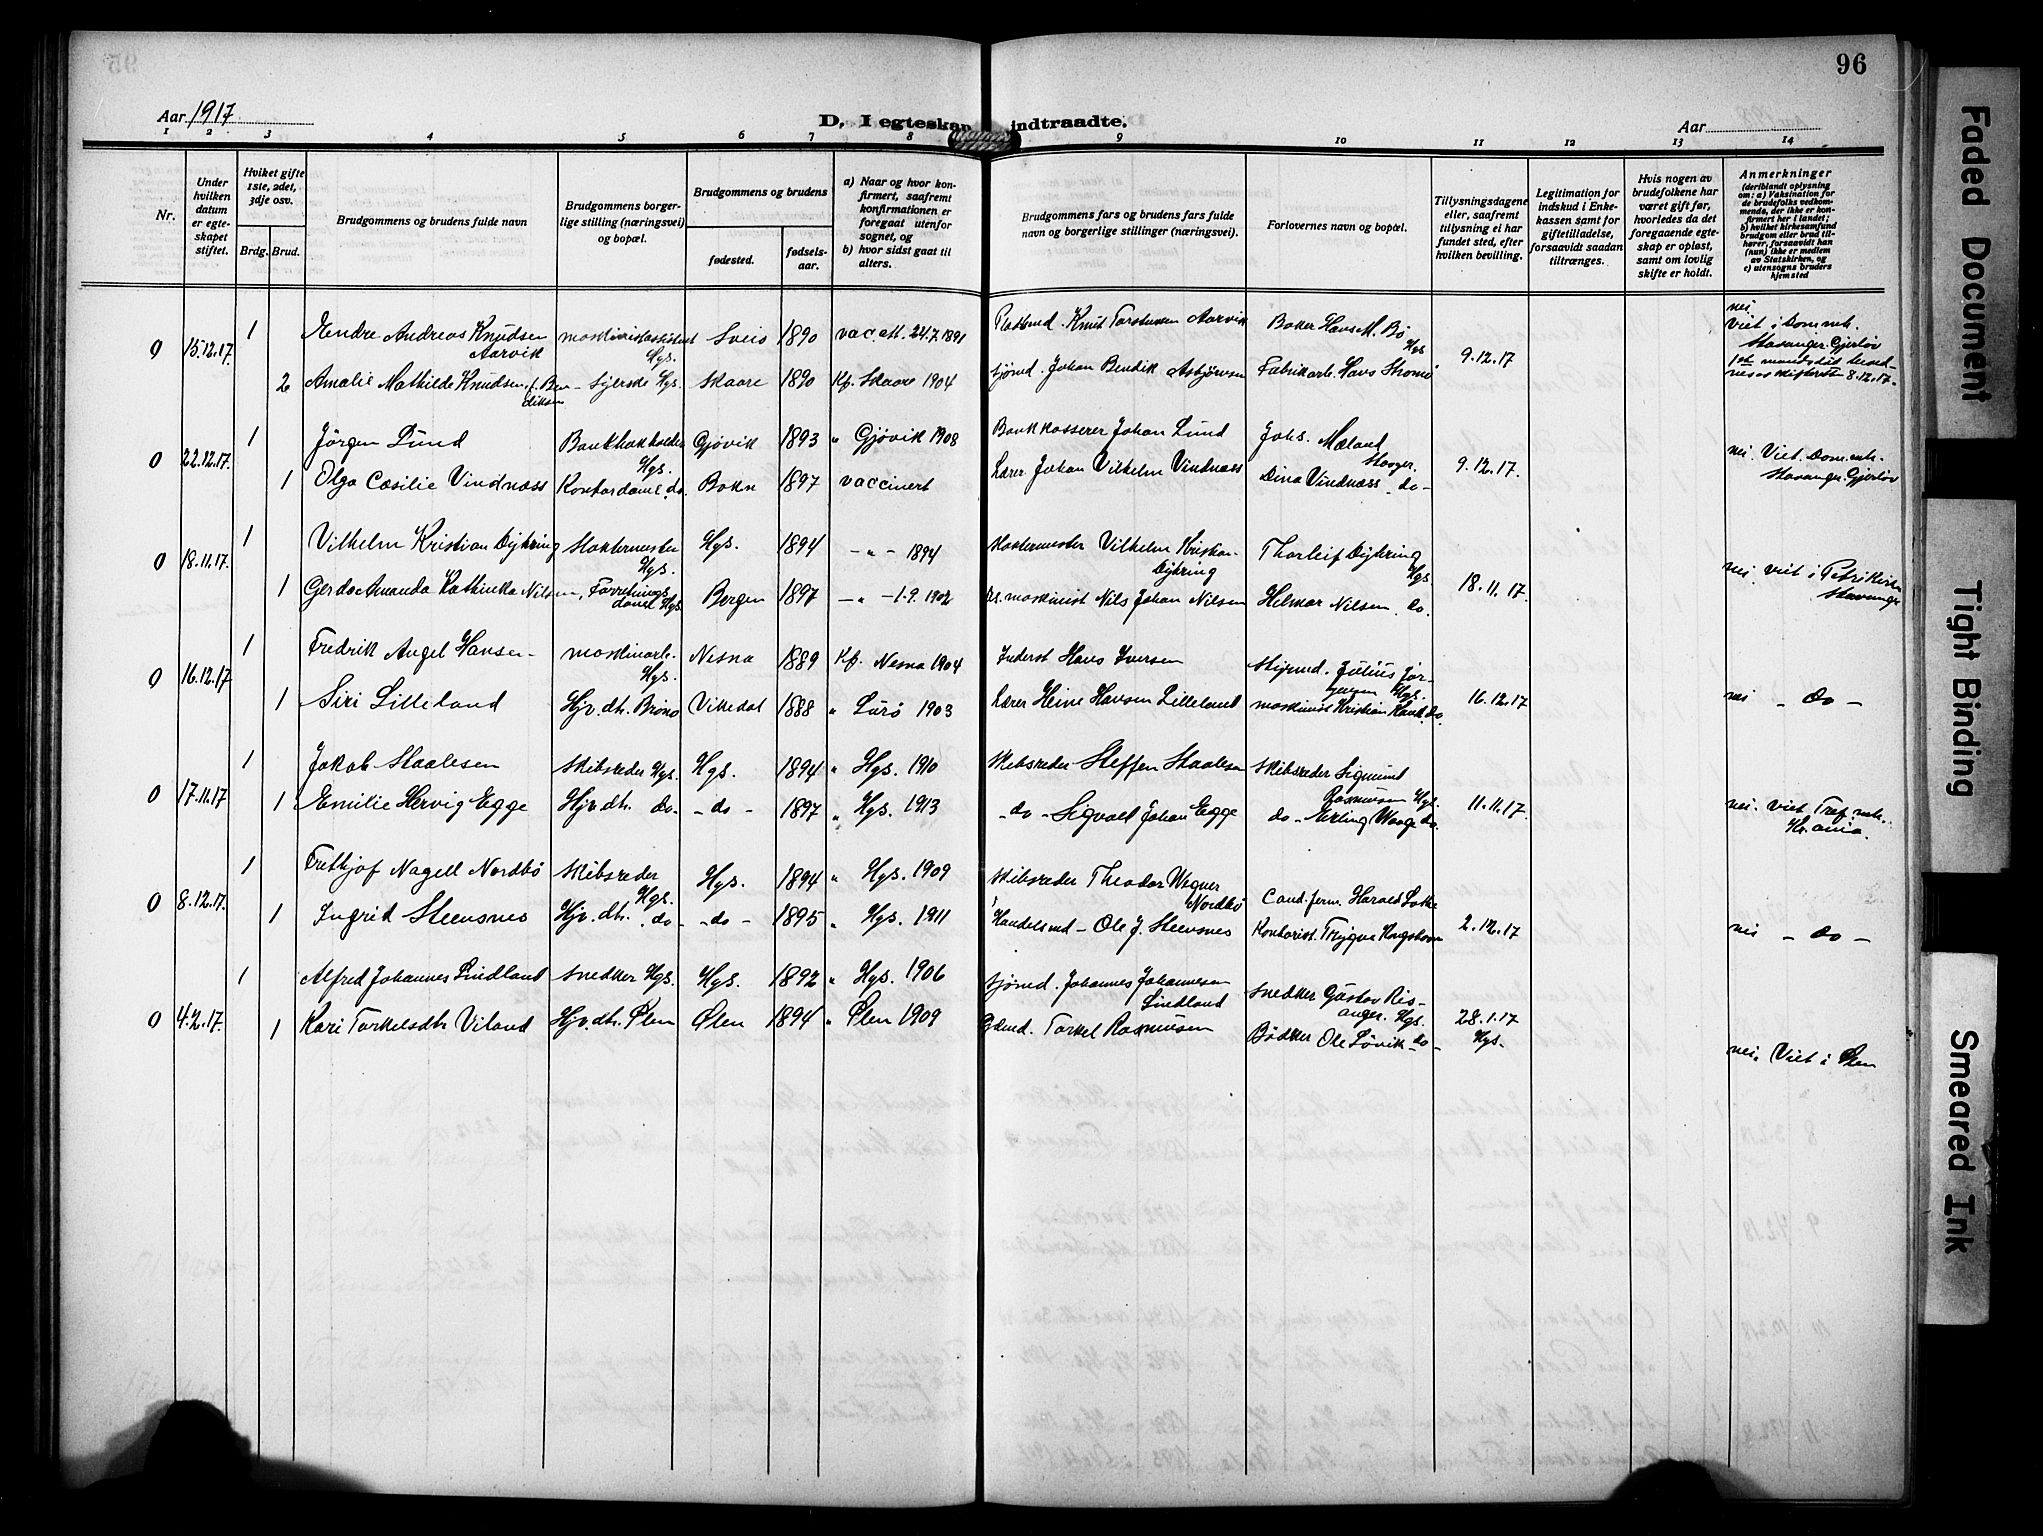 95
96
Aar 1917
D. I egteskap indtraadte.
Aar
1 2 3 4 5 6 7 8 9 10 11 12 13 14
Nr.
Under hvilken datum er egteskapet stiftet.
Hvilket gifte 1ste, 2det, 3dje osv.
Brdg. Brud.
Brudgommens og brudens fulde navn
Brudgommens borgerlige stilling (næringsvei) og bopæl.
Brudgommens og brudens
fødested.
fødselsaar.
a) Naar og hvor konfirmert, saafremt konfirmationen er foregaat utenfor sognet, og
b) hvor sidst gaat til alters.
Brudgommens fars og brudens fars fulde navn og borgerlige stillinger (næringsvei).
Forlovernes navn og bopæl.
Tillysningsdagene eller, saafremt tillysning ei har fundet sted, efter hvilken bevilling.
Legitimation for indskud i Enkekassen samt for giftetilladelse, forsaavidt saadan tiltrænges.
Hvis nogen av brudefolkene har været gift før, hvorledes da det foregaaende egteskap er opløst, samt om lovlig skifte er holdt.
Anmerkninger
(deriblandt oplysning om: a) Vaksination for de brudefolks vedkommende, der ikke er konfirmert her i landet; b) hvilket kirkesamfund brudgom eller brud tilhører, forsaavidt han (hun) ikke er medlem av Statskirken, og c) utensogns bruders hjemsted
0 15.12.17 1 Endre Andreas Knudsen Aarvik maskinistassistent Hgs. Sveio 1890 vac. att. 24.7.1891 Knut Torstensen Aarvik Baker Hans M. Bø Hgs 9.12.17 nei. Viet i Dom.mh. Stavanger. Gjerløv
2 Amalie Mathilde Knudsen, f. Bendiksen Syerske Hgs. Skaare 1890 Kf. Skaare 1904 sjømd. Johan Bendik Asbjørnsen Fabrikarb. Hans Stromø 8.12.17.
0 22.12.17. 1 Jørgen Lund Bankbokholder Hgs. Gjøvik 1893 " Gjøvik 1908 Bankkasserer Johan Lund Johs. Mæland Stavger. 9.12.17. nei. Viet. Dom.mh. Stavanger. Gjerløv
1 Olga Cæsilie Vindnæss Kontordame do. Bokn 1897 vaccinert Lærer Johan Vilhelm Vindnæss Dina Vindnæss - do -
0 18.11.17. 1 Vilhelm Kristian Dyhring Slaktermester Hgs. Hgs. 1894 - " - 1894 Slaktermester Vilhelm Kristian Dyhring Thorleif Dyhring Hgs 18.11.17. nei. Viet i Petri Kirke Stavanger
1 Gerda Amanda Kathinka Nilsen, Forretningsdame Hgs Bergen 1897 - " - 1.9.1902 maskinist Nils Johan Nilsen Helmar Nilsen do.
0 16.12.17 1 Fredrik Angel Hansen maskinarb. Hgs. Nesna 1889 Kf. Nesna 1904 Inderst Hans Iversen Julius Jørgensen Hgs. 16.12.17 nei - do -
1 Siri Lilleland Hjv. dt. Vikedal 1888 " 1903 Lærer Heine Hansen Lilleland maskinist Kristian do.
0 17.11.17 1 Jakob Staalesen Skibsreder Hgs. Hgs. 1894 " Hgs. 1910 Skibsreder Steffen Staalesen Skibsreder Sigmund Rasmussen Hgs. 11.11.17. nei. Viet Kr.ania.
1 Emilie Hervig Egge Hjv. dt. do - - do - 1897 " Hgs. 1913 - do - Sigvald Johan Egge do - Erling Waage do.
0 8.12.17. 1 Frithjof Nagell Nordbø Skibsreder Hgs. Hgs. 1894 " Hgs. 1909 Skibsreder Theodor Wegner Nordbø Cand. ferm. Harald Lothe 2.12.17 nei - do -
1 Ingrid Steensnes Hjv. dt. do - - do - 1895 " Hgs. 1911 Handelsmd - Ole J. Steensnes Kontorist. Trygve
0 4.2.17. 1 Alfred Johannes Lindland Snedker Hgs. Hgs. 1892 " Hgs. 1906 sjømd. Johannes Johannesen Lindland Snedker Gustav Risanger. Hgs. 28.1.17 Hgs. nei. Viet i Ølen
1 Kari Torkelsdtr Viland Hjv. dt. Ølen Ølen 1894 " Ølen 1909 Gbmd. Torkel Rasmussen Bødker Ole Løvik - do -
Faded Document
Tight Binding
Smeared Ink